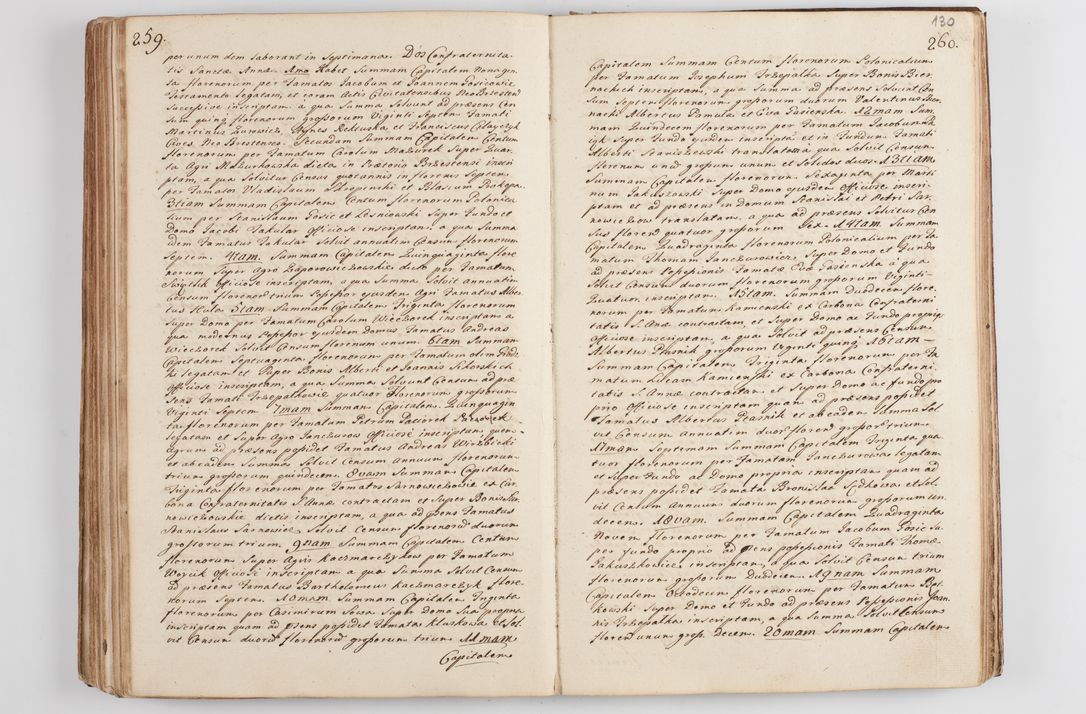 259.
per unum dem laborant in Septimana. Dos Confraternita-
tis Sanctæ Annæ. Imo Habet Summam Capitalem Nonagin-
ta florenorum per famatos Jacobum et Joannem Fosicowic
Testamento legatam, et coram Actis Civitatensibus Neo Brestend
Successive inscriptam. a qua Summa Solvunt ad præsens Cen-
sum quinq florenorum grossorum Viginti Septem famati
Martinus Zurowicz, Agnes et Franciscus Calayczyk
Cives Neo Brestenses. Secundam Summam Capitalem Centum
florenorum per famatum Carolum Mazurek Super Quar-
ta Agri Mazurkowska dicta in Prætorio Brzestensi inscri
ptam, a qua Solvitur Census quotannis in florenis Septem
per famatos Vladislaum et Blasium Prokopa.
3tiam Summam Capitalem Centum florenorum Polonica
lium per Stanislaum Fosic et Lesniowski Super fundo et
Domo Jacobi Takular Officiose inscriptam. a qua Summa
idem famatus Takular Solvit annualem Censum florenorum
Septem. 4tam. Summam Capitalem Quinquaginta flore
norum Super Agro Zaporowiczowskie dicto per famatum
Swiftik Officiose inscriptam, a qua Summa Solvit annuatim
Censum florenord trium Possessor ejusdem Agri famatus Alber
tus Kula. 5tam Summam Capitalem Triginta florenorum
Super Domo per famatum Carolum Wieczorek inscriptam a
qua modernus Possessor ejusdem Domus famatus Andreas
Wieczorek Solvit Censum florenum unum. 6tam Summam
Capitalem Septuaginta florenorum per famatum olim
ki legatam et Super Bonis Alberti et Joannis Sikorskich
Officiose inscriptam, a qua Summa Solvunt Censum ad præ
sens famati Trzepalkowie quatuor florenorum grossorum
Viginti Septem. 7mam Summam Capitalem Quinquagin
ta florenorum per famatum Petrum Pasiorek
legatam et Super Agro Janczurow Officiose inscriptam quem
agrum ad præsens possidet famatus Andreas Wirzbicki
et ab eadem Summa Solvit Censum annuum florenorum
trium grossorum quindecim. 8vam Summam Capitalem
Triginta florenorum per famatos Sarnowiczowie ex Car
bona Confraternitatis S Annæ contractam et Super Bonis Sar
nowiczowskie dictis inscriptam, a qua ad præsens famatus
Stanislaus Sarnowicz Solvit Censum florenord duorum
grossorum trium. 9nam Summam Capitalem Centum
florenorum Super Agris Kaczmarczykow per famatum
Woycik Officiose inscriptam a qua Summa Solvit Censum
ad præsens famatus Bartholomeus Kaczmarczyk flore
norum Septem. 10mam. Summam Capitalem Triginta
florenorum per Casimirum Sowa Super Domo Sua propria
inscriptam quam ad præsens possidet famata Kluskowa et Sol
vit Censum duord florenord grossorum trium 11mam
Capitalem
130
260.
Capitalem Summam Centum florenorum Polonicalium
per famatum Josephum Trzepalka Super Bonis Bier
nackich inscriptam, a qua Summa ad præsens Solvunt Cen
sum Septem florenorum grossorum duorum Valentinus Bier
nacki Albertus Pamula et Eva Fasienska. 12mam Sum-
mam Quindecem florenorum per famatum Jacobum
czyk Super fundo ejusdem inscripta et in fundum famati
Alberti Staniszewski translatam a qua Solvit Censum
florenum und grossum unum et Solidos duos. 13tiam
Summam Capitalem florenorum Sexaginta per Marti
num Jakuszowski Super Domo ejusdem Officiose inscri-
ptam et ad præsens in domum Stanislai et Petri Sar
nowiczow translatam, a qua ad præsens Solvitur Cen
sus florend quatuor grossorum Sex. 14tam. Summam
Capitalem Quadraginta florenorum Polonicalium per fa
matum Thomam Janczurowicz Super Domo et fundo
ad præsens Possessionis famatæ Eva Fasienska a qua
Solvit Censum duorum florenorum grossorum Viginti-
Quatuor, inscriptam. 15tam. Summam Duodecem flore
norum per famatum Kamienski ex Carbona Confraterni
tatis S. Annæ contractam et Super Domo ac fundo proprio
Officiose inscriptam, a qua Solvit ad præsens Censum
Albertus Ptasnik grossorum Viginti quinq. 16tam-
Summam Capitalem Triginta florenorum per fa
matum Lucam Kamienski ex Carbona Confraterni
tatis S. Annæ contractam et Super domo ac fundo pro
prio Officiose inscriptam quam ad præsens possidet
famatus Albertus Ptasnik et ab eadem Summa Sol
vit Censum annuatim duord florend grossord trium
17mam Septemam Summam Capitalem Triginta qua
tuor florenorum per famatam Janczurowa legatam
et Super fundo ac Domo propria inscriptam quam ad
præsens possidet famata Bronislaa Sydkowa et Sol
vit Censum annuum duorum florenorum grossorum un
decem. 18vam. Summam Capitalem Quadraginta
Novem florenorum per famatum Jacobum Fosic Su
per fundo proprio ad præsens possessionis famati Thomæ
Jakuszkowicz inscriptam, a qua Solvit Censum trium
florenorum grossorum Duodecem. 19nam Summam
Capitalem Octodecem florenorum per famatum Byl
kowski Super Domo et fundo ad præsens Possessionis Joan
nis Trzepalka inscriptam, a qua Summa Solvit Censum
florend unum gross. Decem. 20mam Summam Capitalem